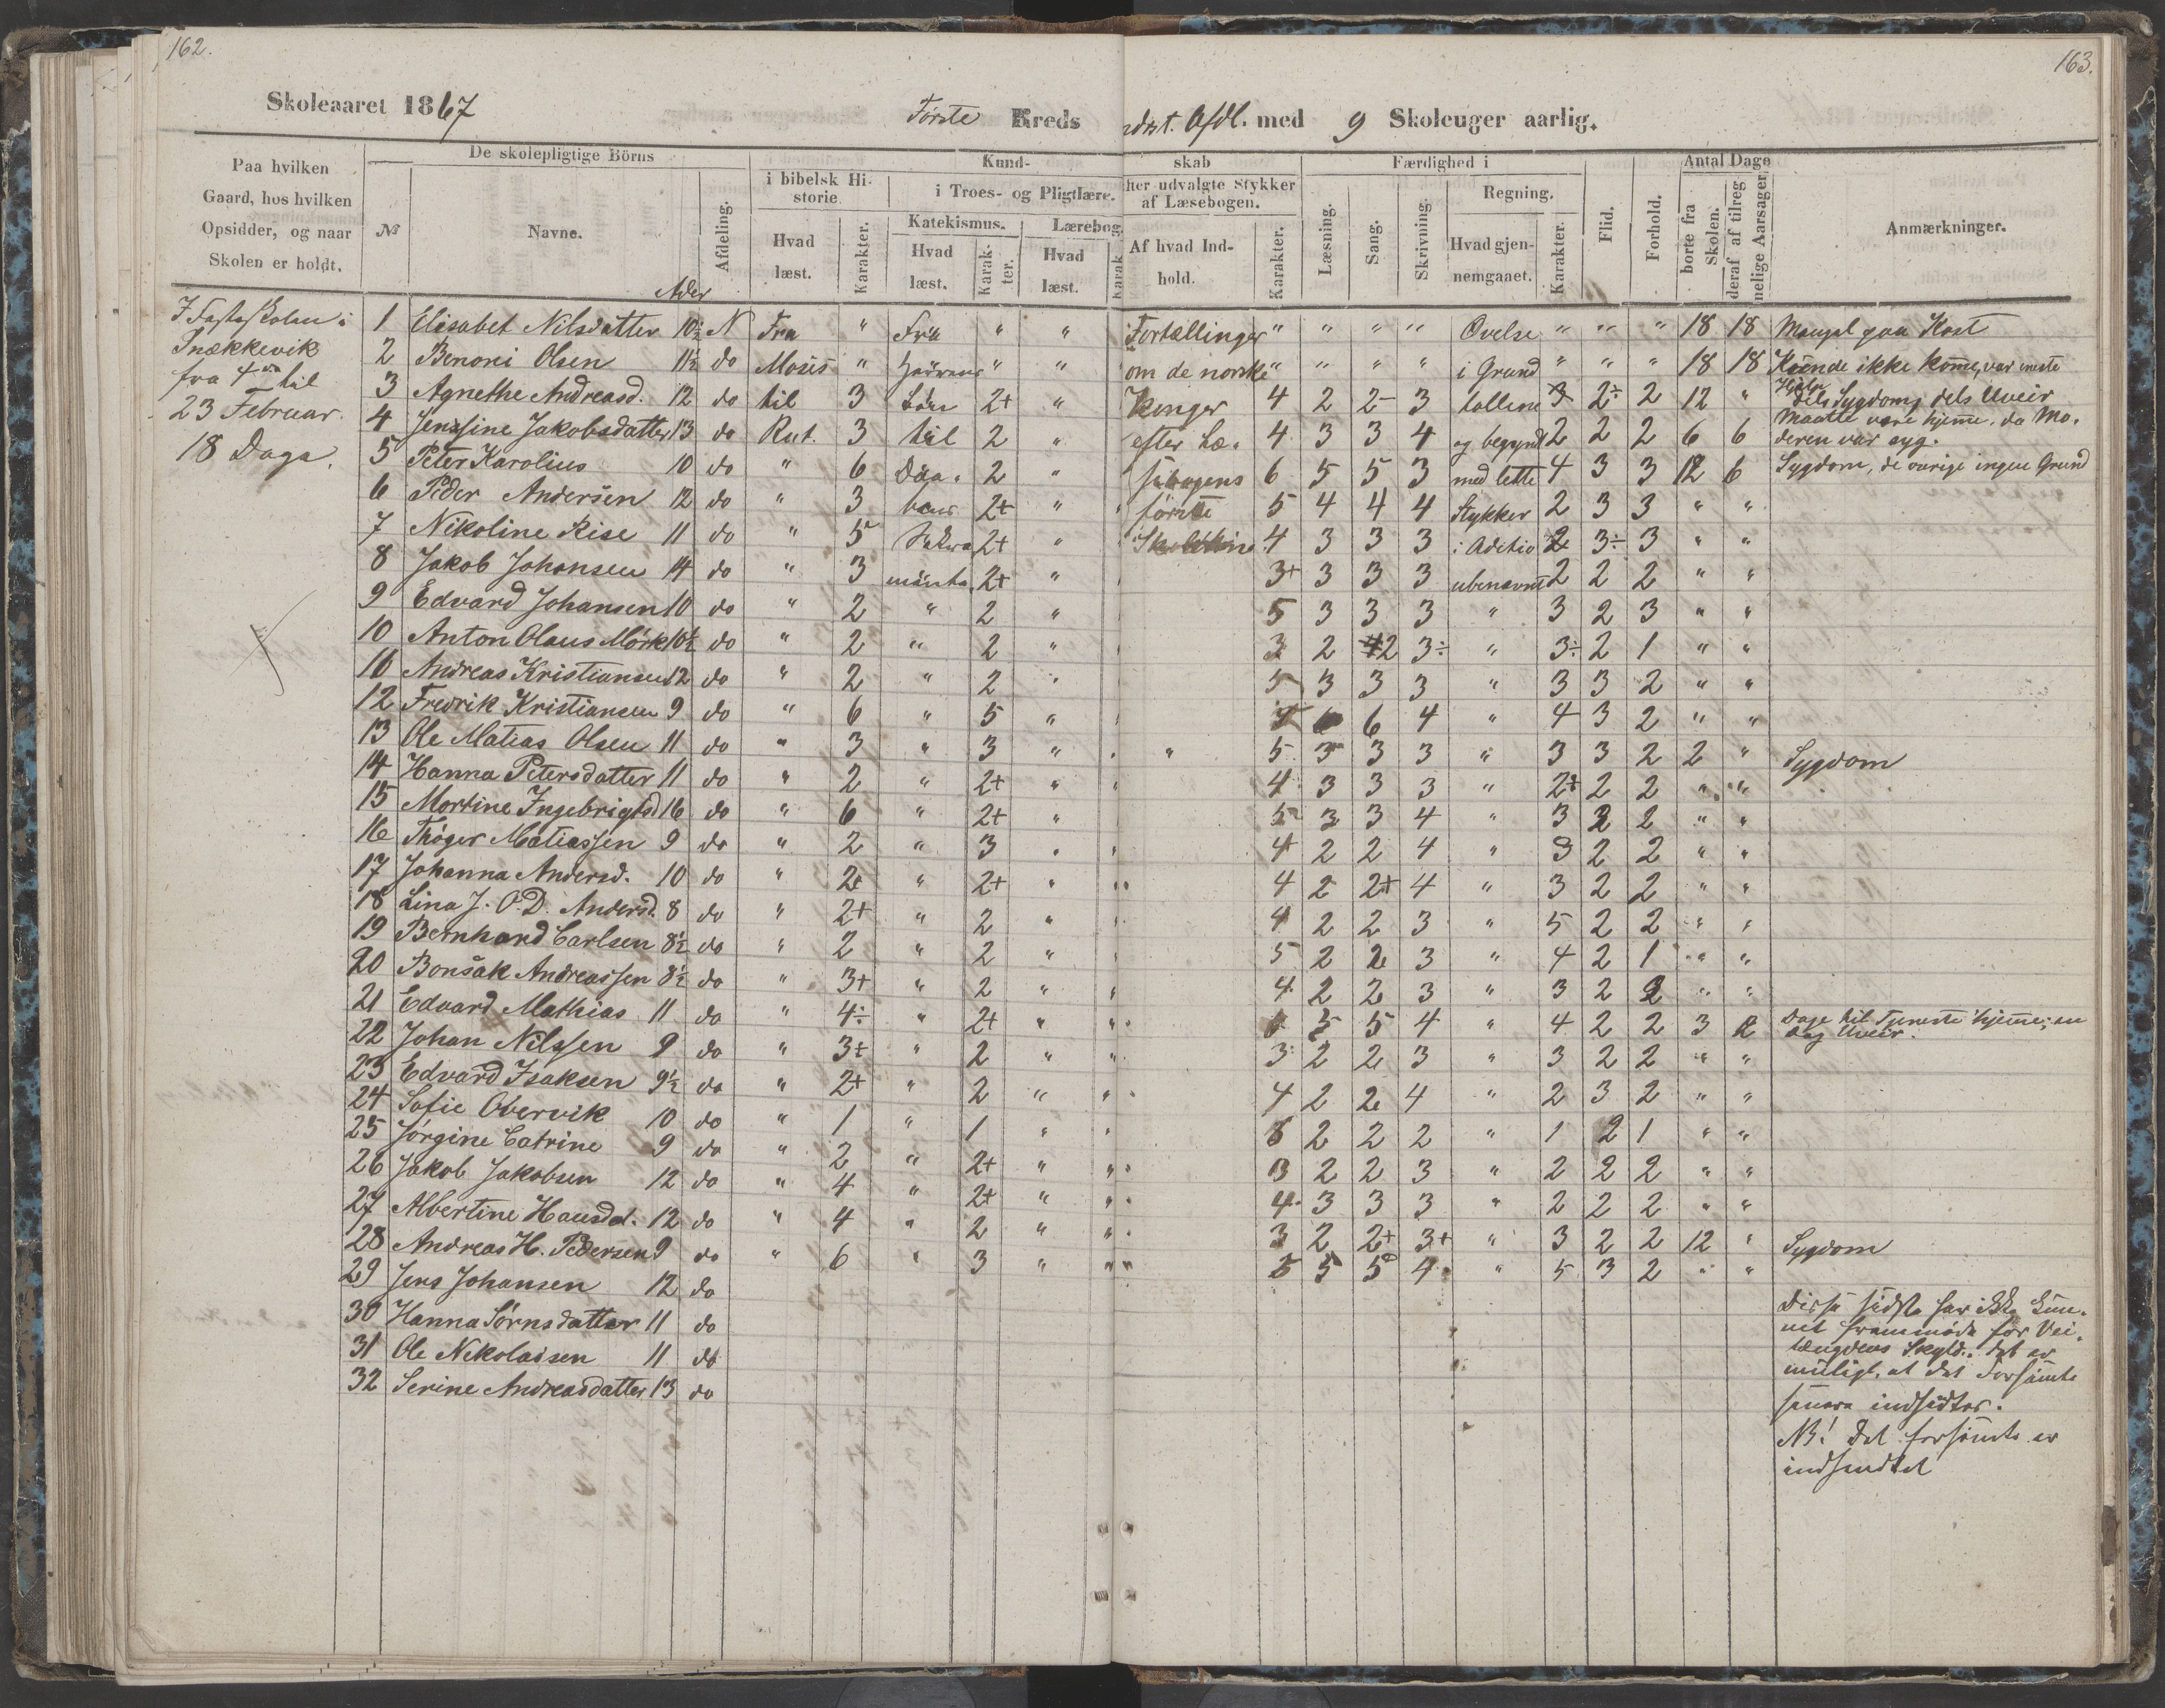 162.
163.
Skoleaaret 1867 Første Kreds Afdl. med 9 Skoleuger aarlig.
Paa hvilken Gaard, hos hvilken Opsidder, og naar Skolen er holdt.
De skolepligtige Börns
№ Navne. Alder Afdeling.
Kundskab
i bibelsk Historie
Hvad læst. Karakter.
i Troes- og Pligtlære.
Katekismus. Hvad læst. Karakter.
Lærebog. Hvad læst. Karak
fter udvalgte Stykker af Læsebogen.
Af hvad Indhold. Karakter.
Færdighed i
Læsning. Sang. Skrivning.
Regning. Hvad gjennemgaaet. Karakter.
Flid. Forhold.
Antal Dage
borte fra Skolen. deraf af tilregnelige Aarsager
Anmærkninger.
I Fasteskolen i
Snækkevik
fra 4de til
23 Februar.
18 Dage.
1 Elisabet Nilsdatter 10½ N Fra " Fra " " Fortællinger " " " " Øvelse " " " 18 18 Mangel paa Kost
2 Benoni Olsen 11½ do Moses " " " om de norske " " " " i Grund " " " 18 18 Kunde ikke komme, var
3 Agnethe Andreasd. 12 do til 3 2+ " Konger 4 2 2- 3 tallene 3 2÷ 2 12 " dels Sygdom, dels Uveir
4 Jensine Jakobsdatter 13 do Rut. 3 til 2 " efter Læ- 4 3 3 4 og begyndt 2 2 2 6 6 Maatte være hjemme, da Moderen var syg.
5 Peter Karolius 10 do " 6 Daa- 2 " sebogens 6 5 5 3 med lette 4 3 3 12 6 Sygdom, de øvrige ingen Grund
6 Peder Andersen 12 do " 3 bens 2+ " første 5 4 4 4 Stykker 2 3 3 " "
7 Nikoline Rise 11 do " 5 Sakra 2+ " 4 3 3 3 i Aditio 2 3÷ 3 " "
8 Jakob Johansen 14 do " 3 mente. 2+ " 3+ 3 3 3 ubenævnt 2 2 2 " "
9 Edvard Johansen 10 do " 2 " 2 " 5 3 3 3 " 3 2 3 " "
10 Anton Olaus Mørk 10½ do " 2 " 2 " 3 2 2 3÷ " 3÷ 2 1 " "
10 Andreas Kristiansen 12 do " 2 " 2 " 5 3 3 3 " 3 3 2 " "
12 Fredrik Kristiansen 9 do " 6 " 5 " 6 6 4 " 4 3 2 " "
13 Ole Matias Olsen 11 do " 3 " 3 " " 5 3 3 3 " 3 3 2 2 " Sygdom
14 Hanna Petersdatter 11 do " 2 " 2+ " 4 3 3 3 " 2+ 2 2 " "
15 Martine Ingebrigtsd 16 do " 6 " 2+ " 5 3 3 4 " 3 2 2 " "
16 Thøger Matiassen 9 do " 2 " 3 " 4 2 2 4 " 3 2 2 " "
17 Johanna Andersd. 10 do " 2+ " 2+ " 4 2 2+ 4 " 3 2 2 " "
18 Lina J. O. D. Andersd. 8 do " 2+ " 2 " 4 2 2 3 " 5 2 2 " "
19 Bernhard Carlsen 8½ do " 2 " 2 " 5 2 2 3 " 4 2 1 " "
20 Bonsak Andreassen 8½ do " 3+ " 2 " 4 2 2 3 " 3 2 2 " "
21 Edvard Mathias 11 do " 4÷ " 2+ " 6 5 5 4 " 4 2 2 3 2 Dage til Tjeneste hjemme; en Dag Uveir.
22 Johan Nilssen 9 do " 3+ " 2 " 3 2 2 3 " 3 2 2 " "
23 Edvard Isaksen 9½ do " 2+ " 2 " 4 2 2 4 " 2 3 2 " "
24 Sofie Obervik 10 do " 1 " 1 " 2 2 2 " 1 2 1 " "
25 Jørgine Catrine 9 do " 2 " 2+ " 3 2 2 3 " 2 2 2 " "
26 Jakob Jakobsen 12 do " 4 " 2+ " 4 3 3 3 " 2 2 2 " "
27 Albertine Hansd. 12 do " 4 " 2 " 3 2 2+ 3+ " 3 2 2 12 " Sygdom
28 Andreas H. Pedersen 9 do " 6 " 3 " 5 5 5 4 " 5 3 2 " "
29 Jens Johansen 12 do
30 Hanna Sørnsdatter 11 do
31 Ole Nikolaisen 11 do
32 Serine Andreasdatter 13 do
Disse sidste har ikke kun-
net fremmøde for Vei-
længdens Skyld. Det er
muligt, at det Forsømte
senere indhentes.
NB! Det forsømte er
indhendtet